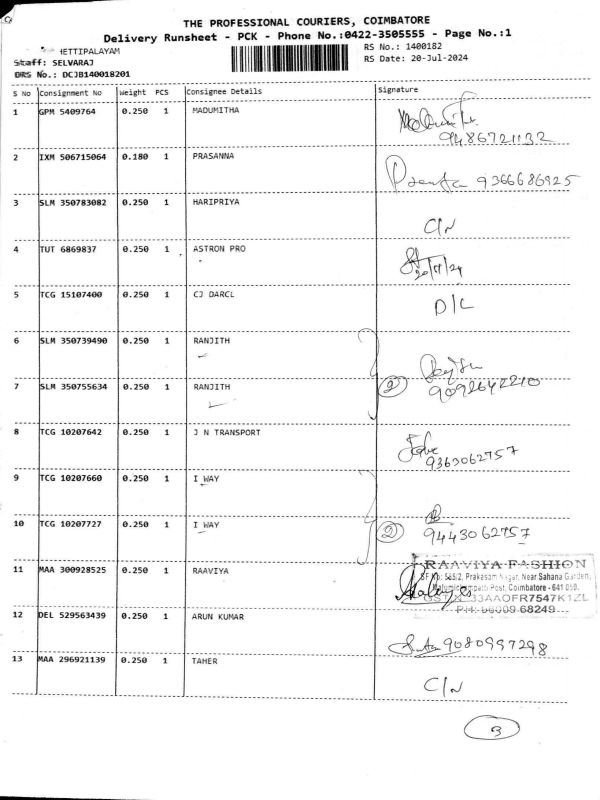 THE PROFESSIONAL COURIERS, COIMBATORE
Delivery Runsheet - PCK - Phone No.:0422-3505555 - Page No.:1
HETTIPALAYAM
RS No.: 1400182
Staff: SELVARAJ
RS Date: 20-Jul-2024
DRS No.: DCJB140018201
S No Consignment No Weight PCS Consignee Details Signature
1 GPM 5409764 0.250 1 MADUMITHA
9486721132
2 IXM 506715064 0.180 1 PRASANNA
9366686925
3 SLM 350783082 0.250 1 HARIPRIYA
C/N
4 TUT 6869837 0.250 1 ASTRON PRO
5 TCG 15107400 0.250 1 CJ DARCL
D/L
6 SLM 350739490 0.250 1 RANJITH
7 SLM 350755634 0.250 1 RANJITH
2 9092642210
8 TCG 10207642 0.250 1 J N TRANSPORT
9363062757
9 TCG 10207660 0.250 1 I WAY
10 TCG 10207727 0.250 1 I WAY
2 9443062757
11 MAA 300928525 0.250 1 RAAVIYA
RAAVIYA FASHION
SF No: 565/2, Prakasam Nagar, Near Sahana Garden,
Post, Coimbatore - 641 050.
33AAOFR7547K1ZL
68249
12 DEL 529563439 0.250 1 ARUN KUMAR
9080997298
13 MAA 296921139 0.250 1 TAHER
C/N
3